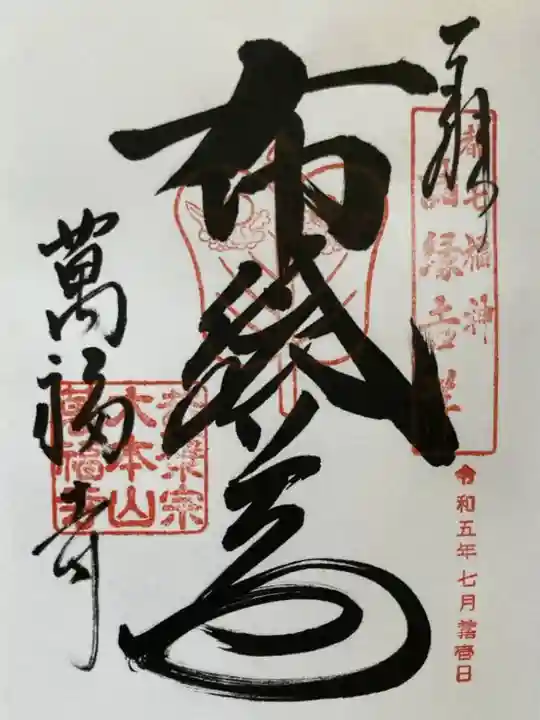 奉拝
都七福神
諸縁吉祥
令和五年七月 壹日
布袋尊
萬福寺
黄檗宗
大本山
萬福寺